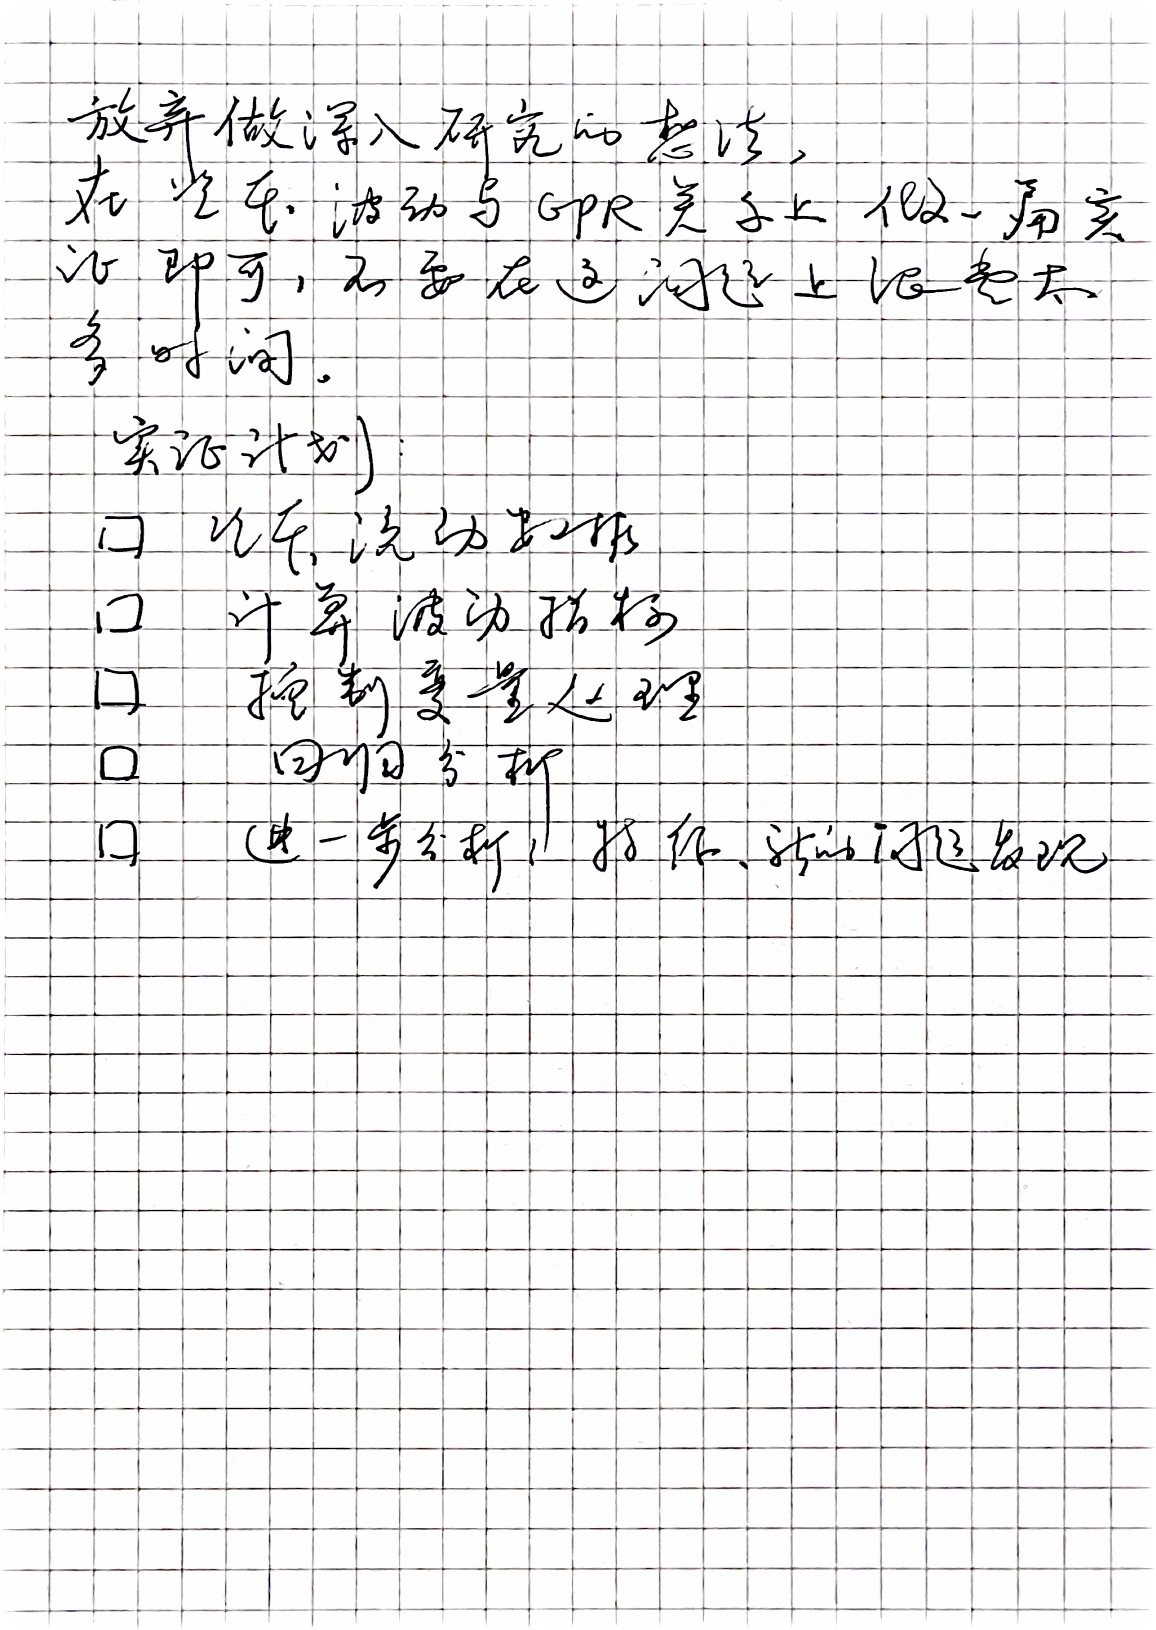 放弃做深入研究的想法，
在汇率波动与GPR关系上做一篇实
证即可，不要在这问题上浪费太
多时间。
实证计划：
口 汇率流动数据
口 计算波动指标
口 控制变量处理
口 回归分析
口 进一步分析，新的问题发现